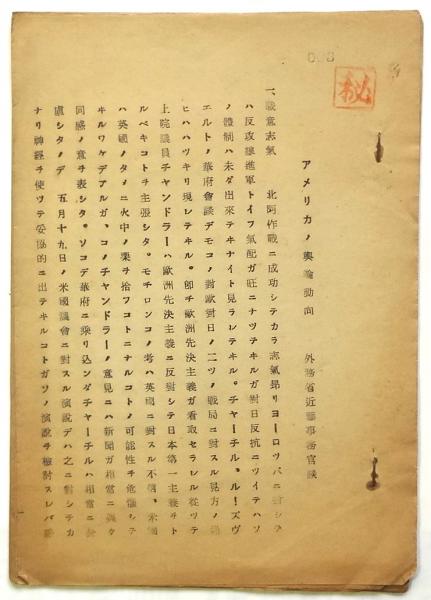 003
秘
アメリカノ輿論動向　　外務省近藤事務官談
一、戰意志氣　　北阿作戰ニ成功シテカラ志氣昂リヨーロツパニ對シテ
ハ反攻進軍トイフ氣配ガ旺ニナツテキルガ對日反抗ニツイテハソ
ノ體制ハ未ダ出來テヰナイト見ラレテキル。チャーチル、ルーズヴ
エルトノ華府會談デモコノ對歐對日ノ二ツノ戰局ニ對スル見方ノ
ヒハハツキリ現レテキル。卽チ歐洲先決主義ガ看取セラレル從ツテ
上院議員チャンドラーハ歐洲先決主義ニ反對シテ日本第一主義ヲト
ルベキコトヲ主張シタ。モチロンコノ考ハ英國ニ對スル不信、米國
ハ英國ノタメニ火中ノ栗ヲ拾フコトニナルコトノ可能性ヲ危惧シテ
キルワケデアルガ、コノチャンドラーノ意見ニハ新聞ガ相當ニ强ク
同感ノ意ヲ表シタ。ソコデ華府ニ乘リ込ンダチャーチルハ相當ニ
慮シタノデ　五月十九日ノ米國議會ニ對スル演說デハ之ニ對シテカ
ナリ神經ヲ使ツテ妥協的ニ出テキルコトガソノ演說ヲ檢討スレバ